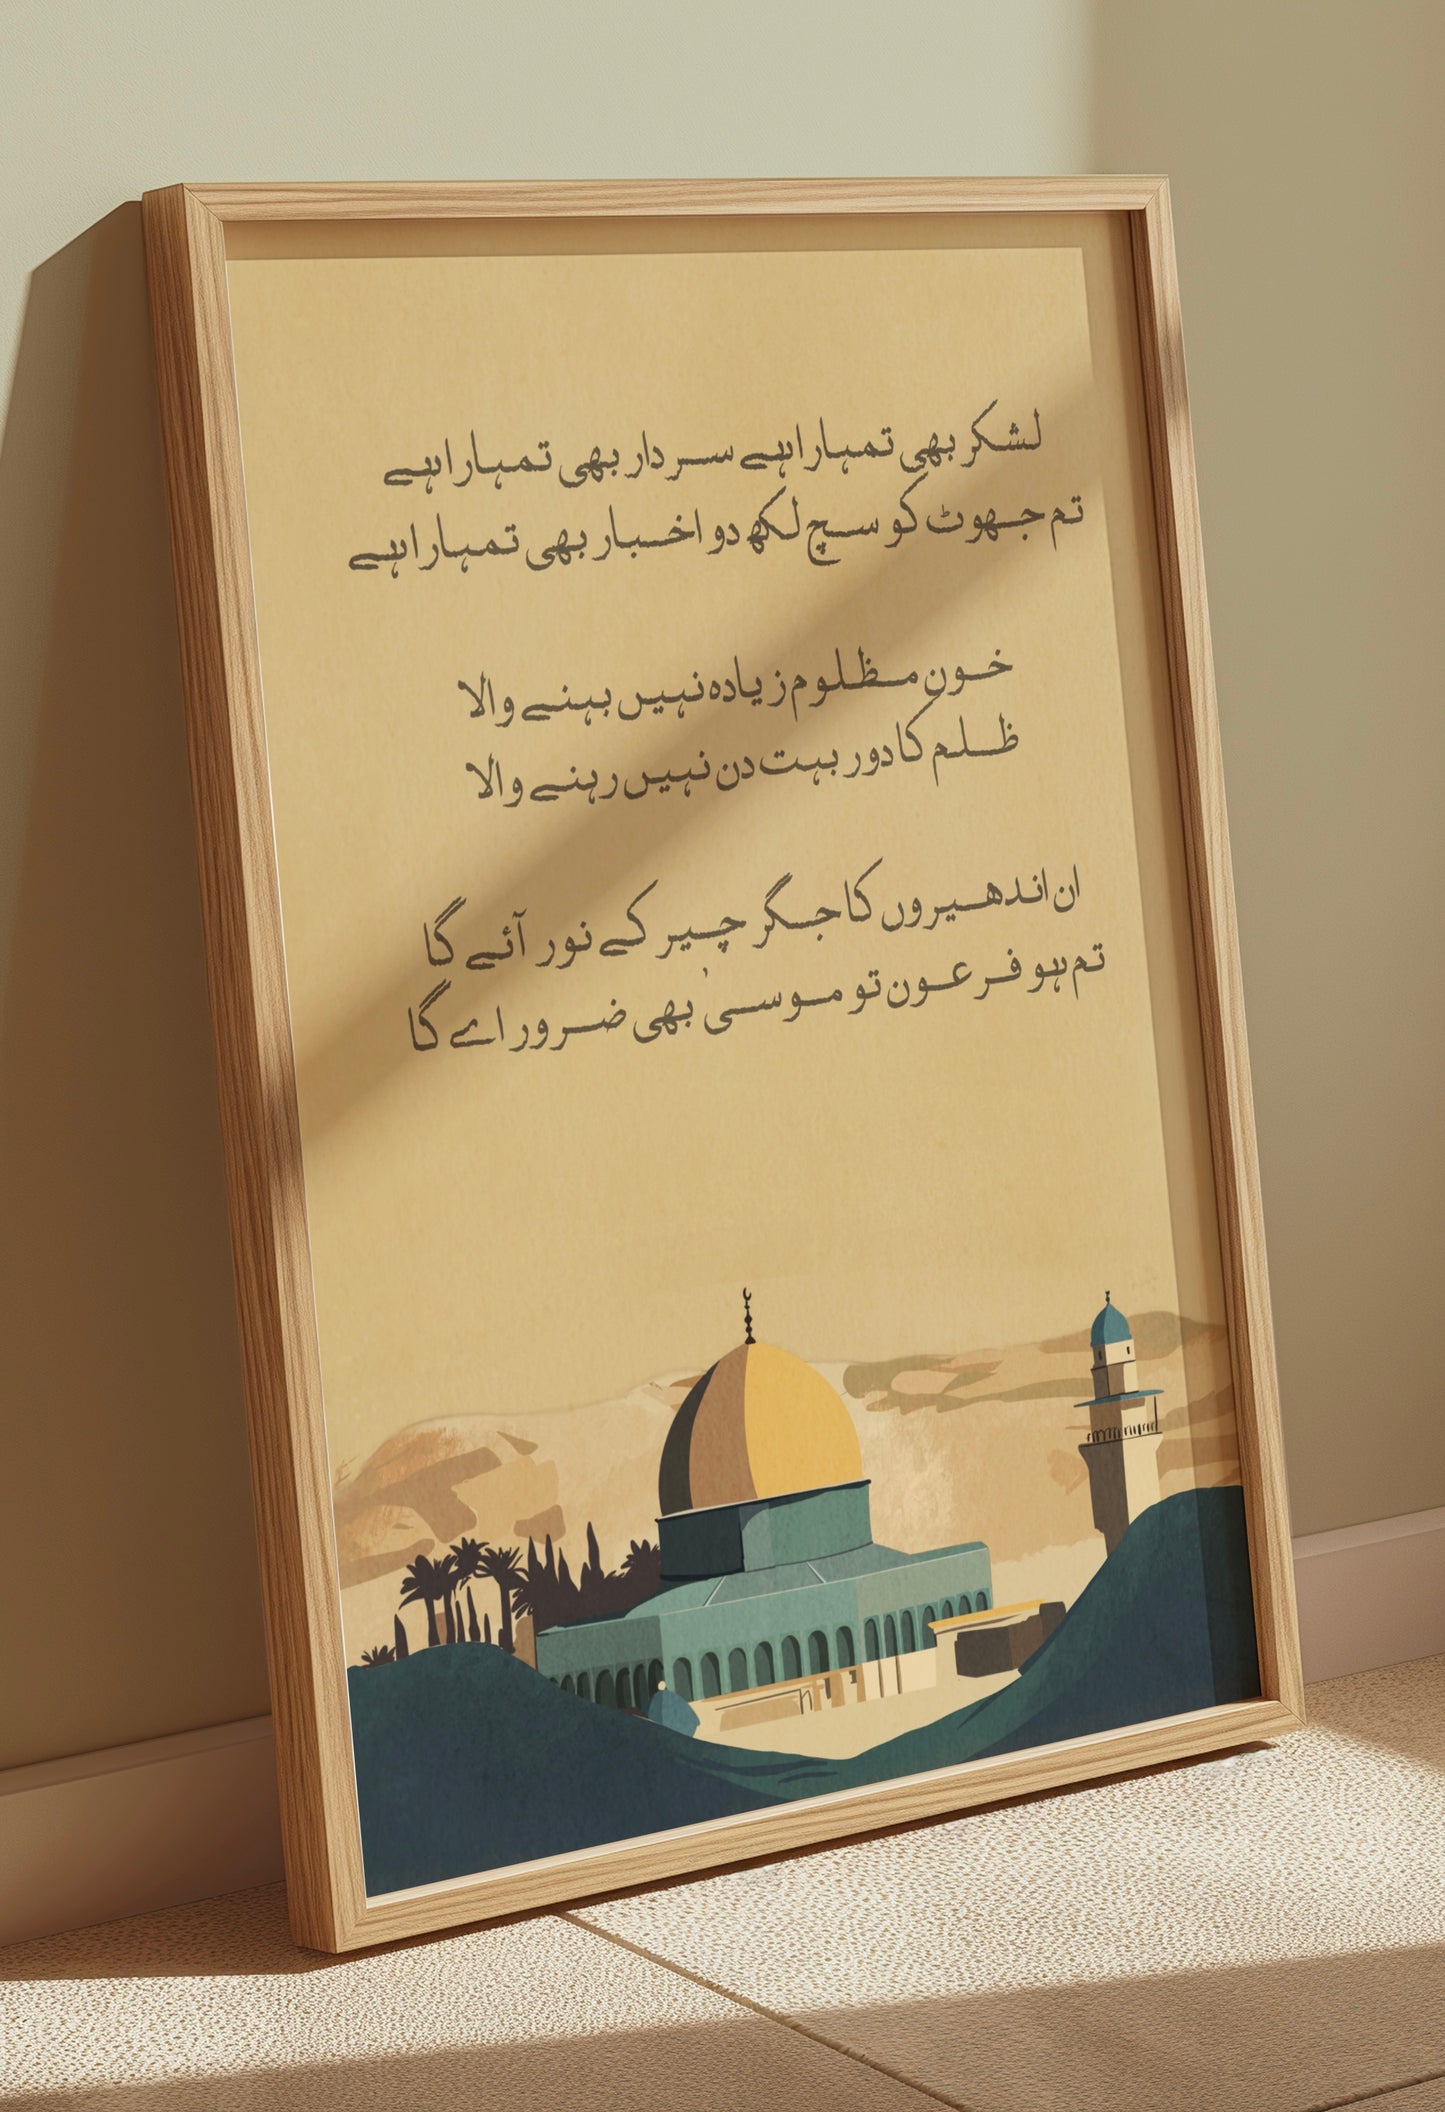 لشکر بھی تمہارا ہے سردار بھی تمہارا ہے
تم جھوٹ کو سچ لکھ دو اخبار بھی تمہارا ہے
خونِ مظلوم زیادہ نہیں بہنے والا
ظلم کا دور بہت دن نہیں رہنے والا
ان اندھیروں کا جگر چیر کے نور آئے گا
تم ہو فرعون تو موسیٰ بھی ضرور اے گا